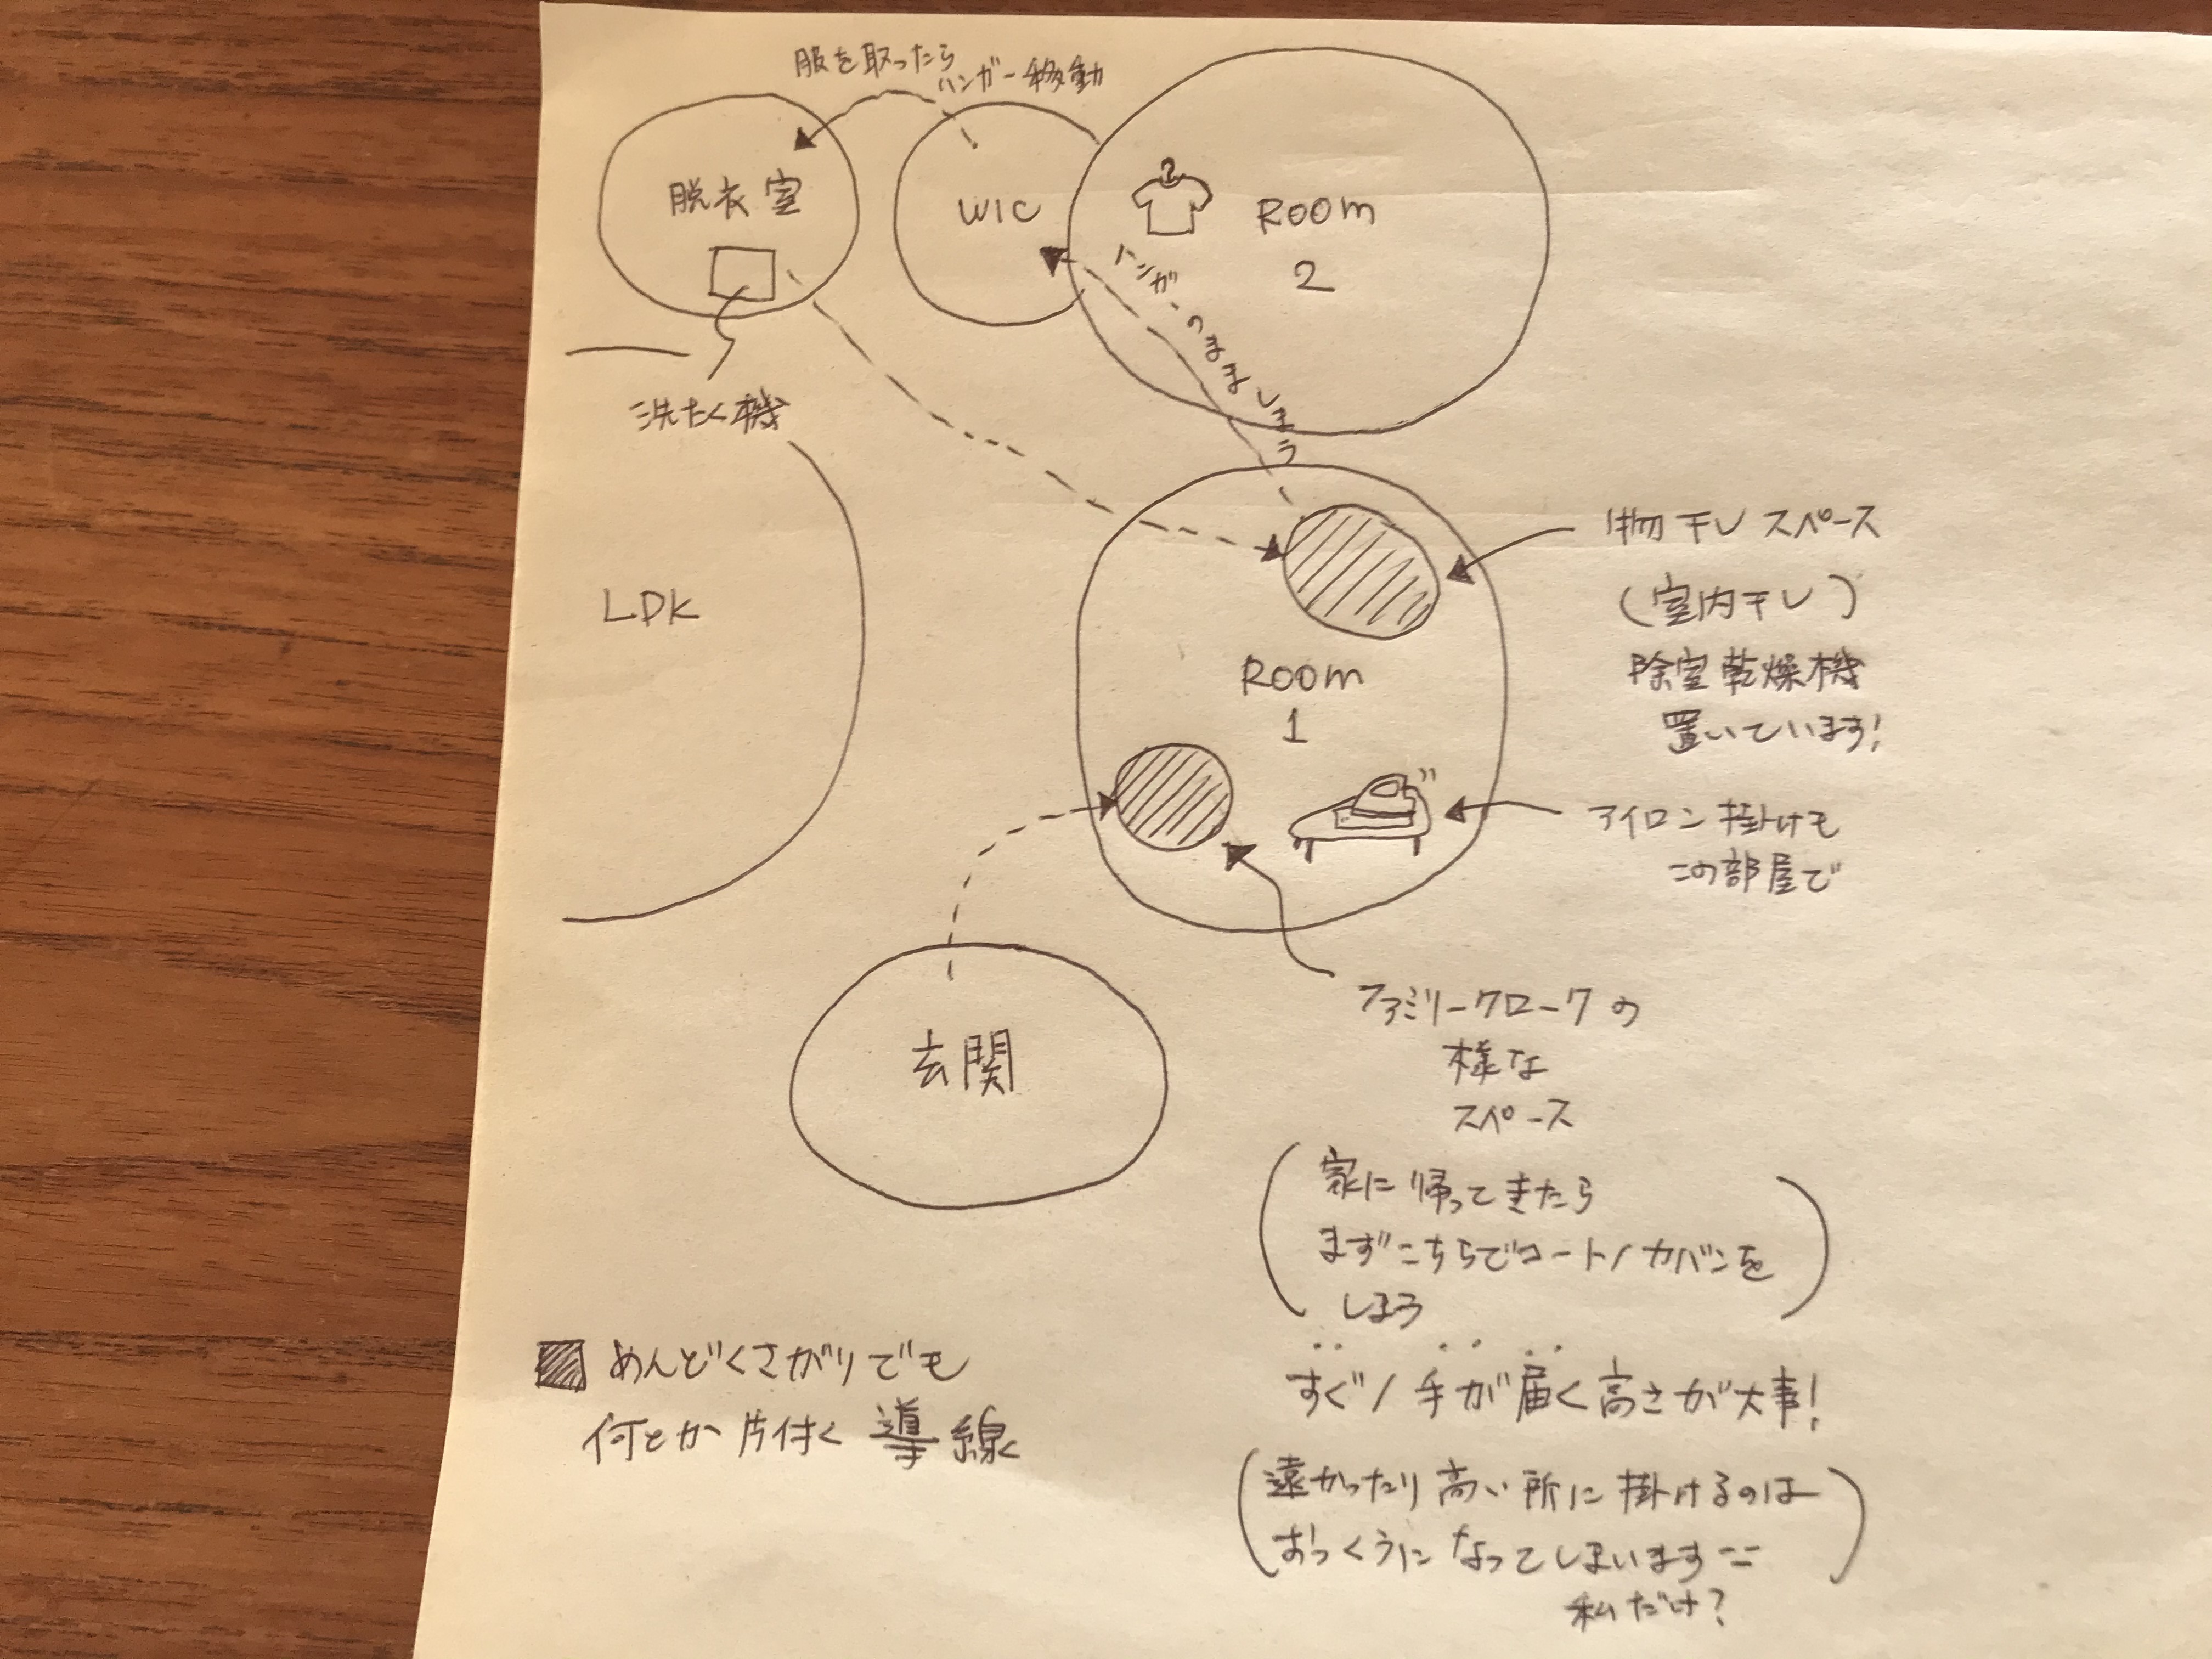 服を取ったら
ハンガー移動
脱衣室
WIC
ROOM
2
ハンガーのままましまう
洗たく機
LDK
物干しスペース
(室内干し)
除室乾燥機
置いています!
ROOM
1
アイロン掛けも
この部屋で
玄関
ファミリークロークの
様な
スペース
家に帰ってきたら
まずこちらでコート/カバンを
しまう
めんどくさがりでも
何とか片付く導線
すぐ/手が届く高さが大事!
遠かったり高い所に掛けるのは
おっくうになってしまいます
私だけ?